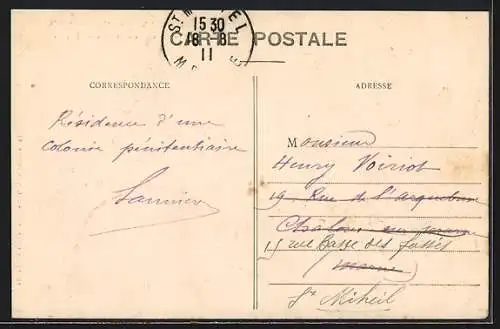 ST M EL
15 30
18 - 8
11
M
CARTE POSTALE
CORRESPONDANCE
ADRESSE
Résidence d'une
colonie pénitentiaire
Monsieur
Henry Voiriot
19 Rue de l'arquebuse
Chalons sur marne
15 rue Basse des fossés
Marne
St Mihiel